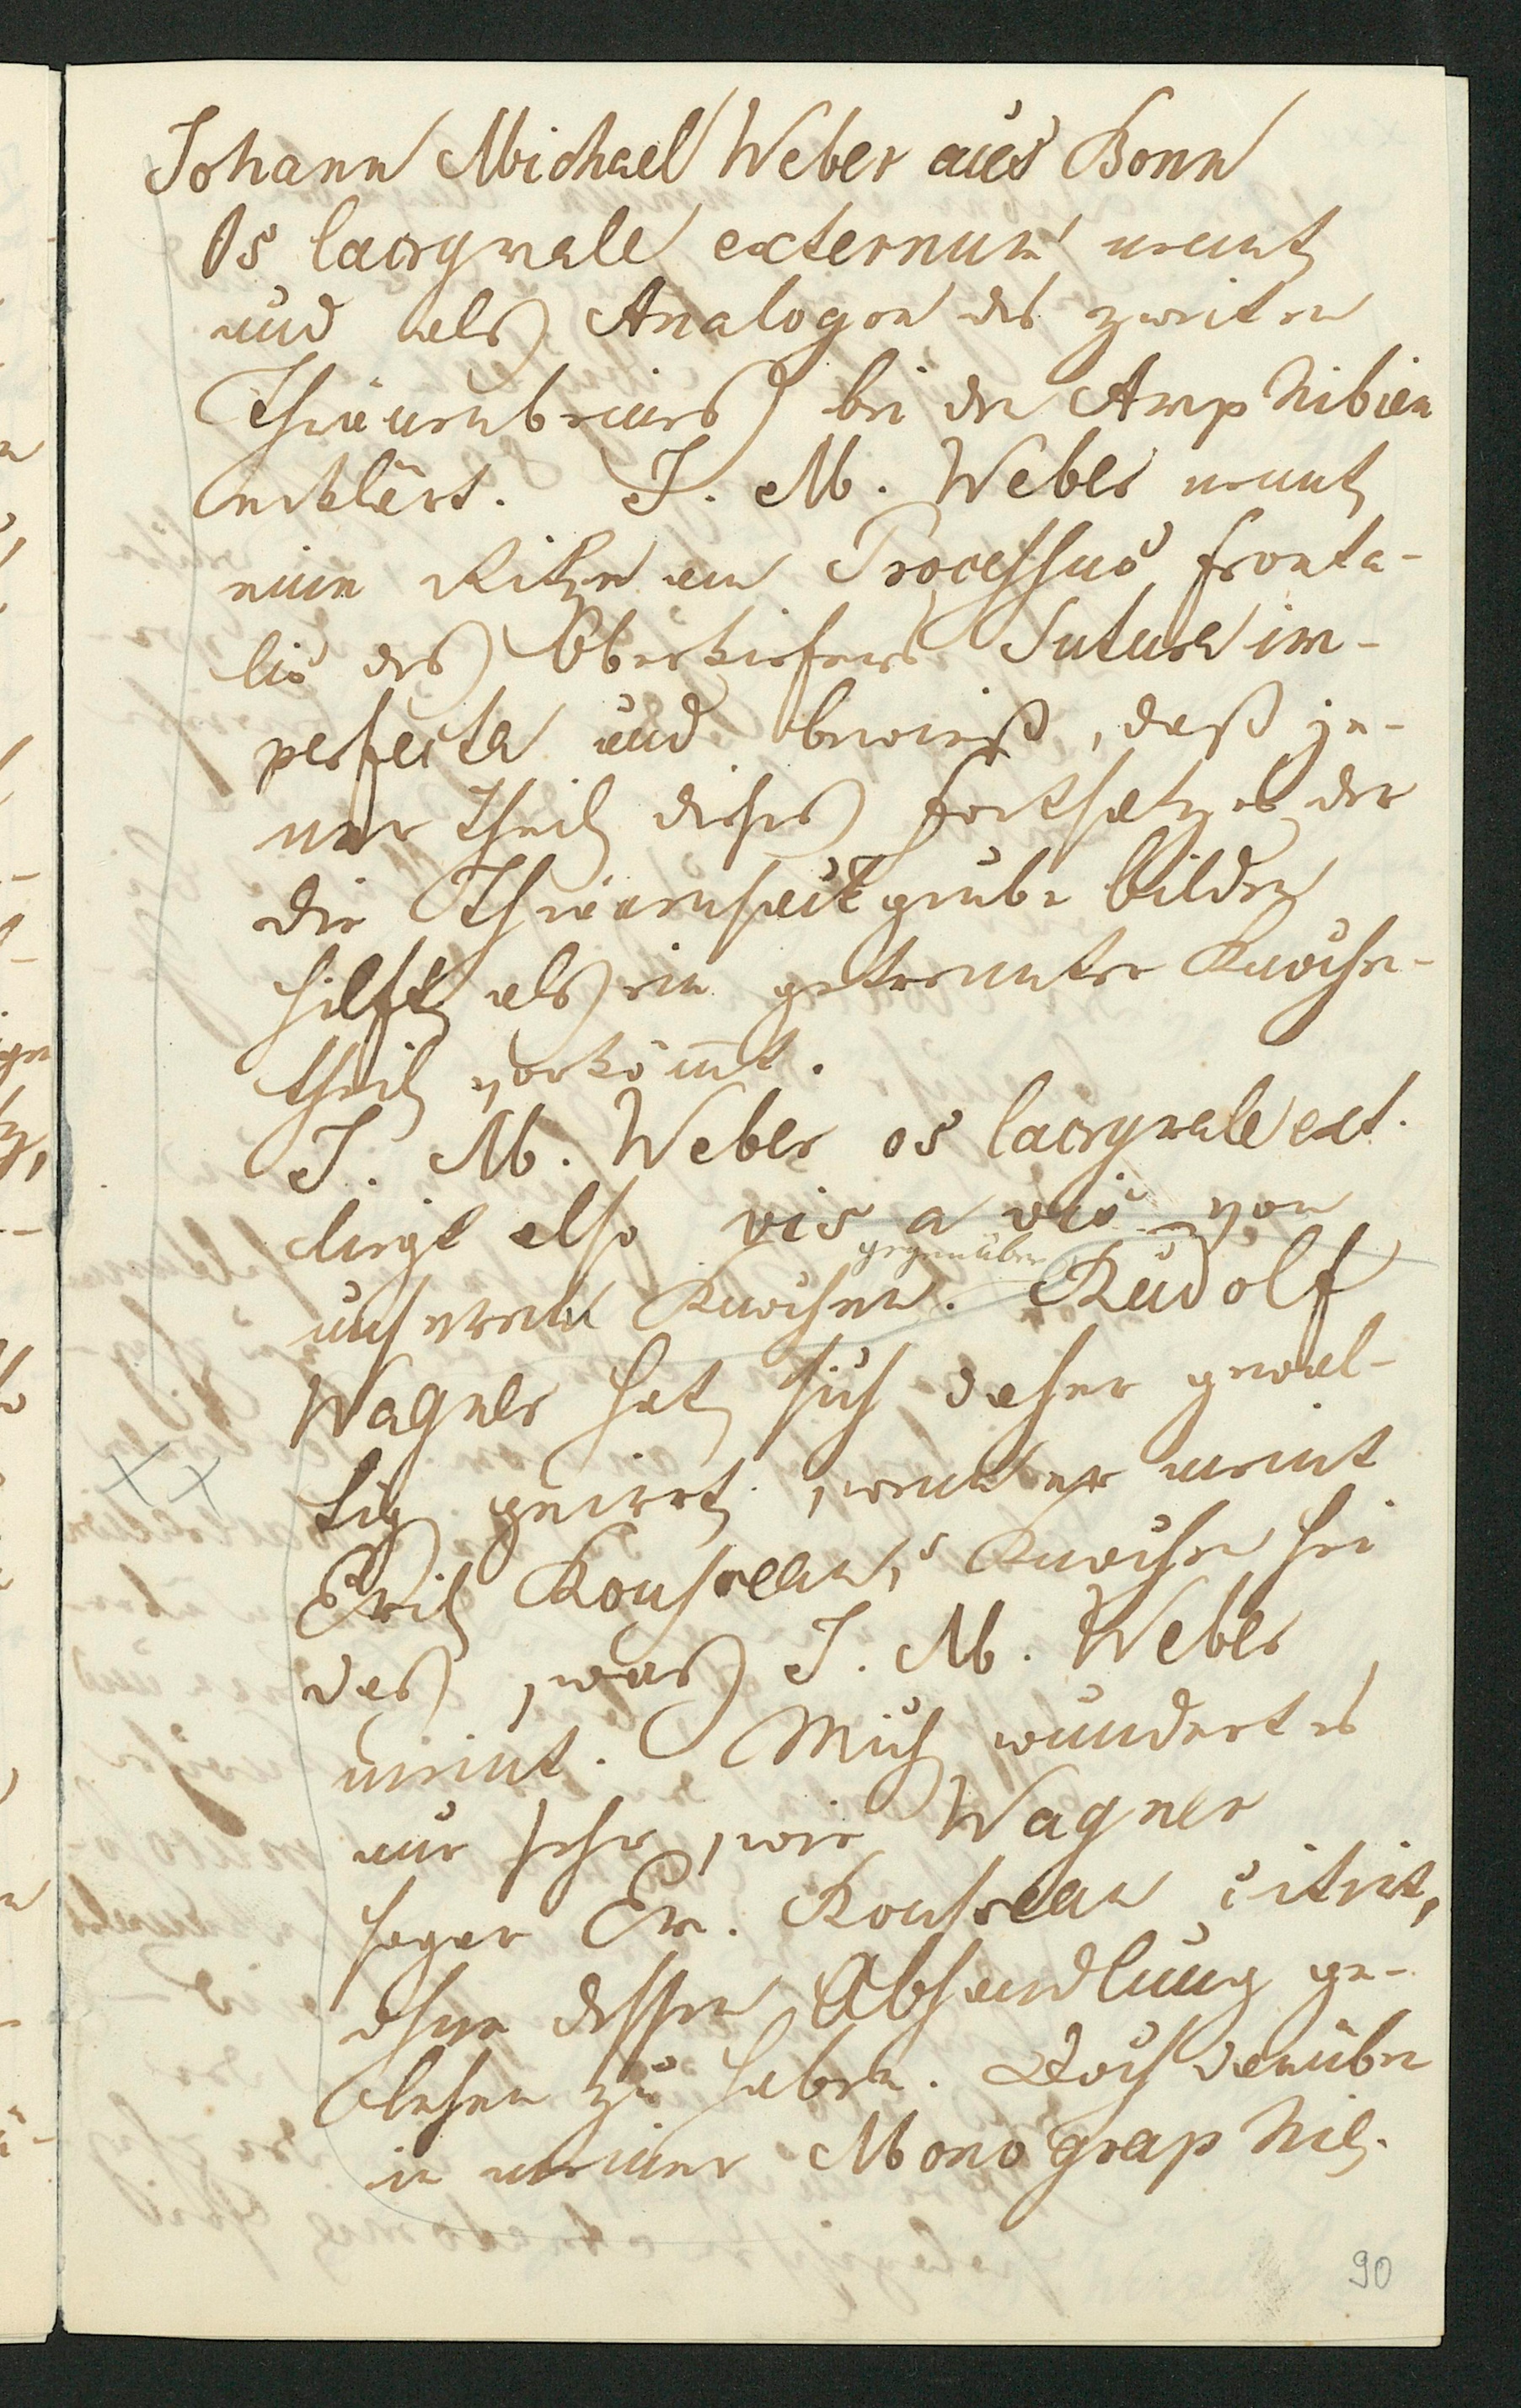 Johann Michael Weber aus Bonn
Os lacrymale externum nennt
und als Analogon des zweiten
Thränenbeins bei den Amphibien
erklärt. J. M. Weber nennt
eine Ritze am Processus fronta-
lis des Oberkiefers Sutura im-
perfecta und beweist, daß je-
ner Theil dieses Fortsatzes der
die Thränensackgrube bilden
hilft als ein getrennter Knochen-
theil vorkommt.
J. M. Weber os lacrymale ext.
liegt also vis a vis von
gegenüber
unserem Knochen. Rudolf
Wagner hat sich daher gewal-
tig geirrt, wenn er meint
Emil Rousseau's Knochen sei
das, was J. M. Weber
meint. Mich wundert es
nur sehr, wie Wagner
sogar Em. Rousseau citirt,
ohne dessen Abhandlung ge-
lesen zu haben. Doch darüber
in meiner Monographie.
XX
90